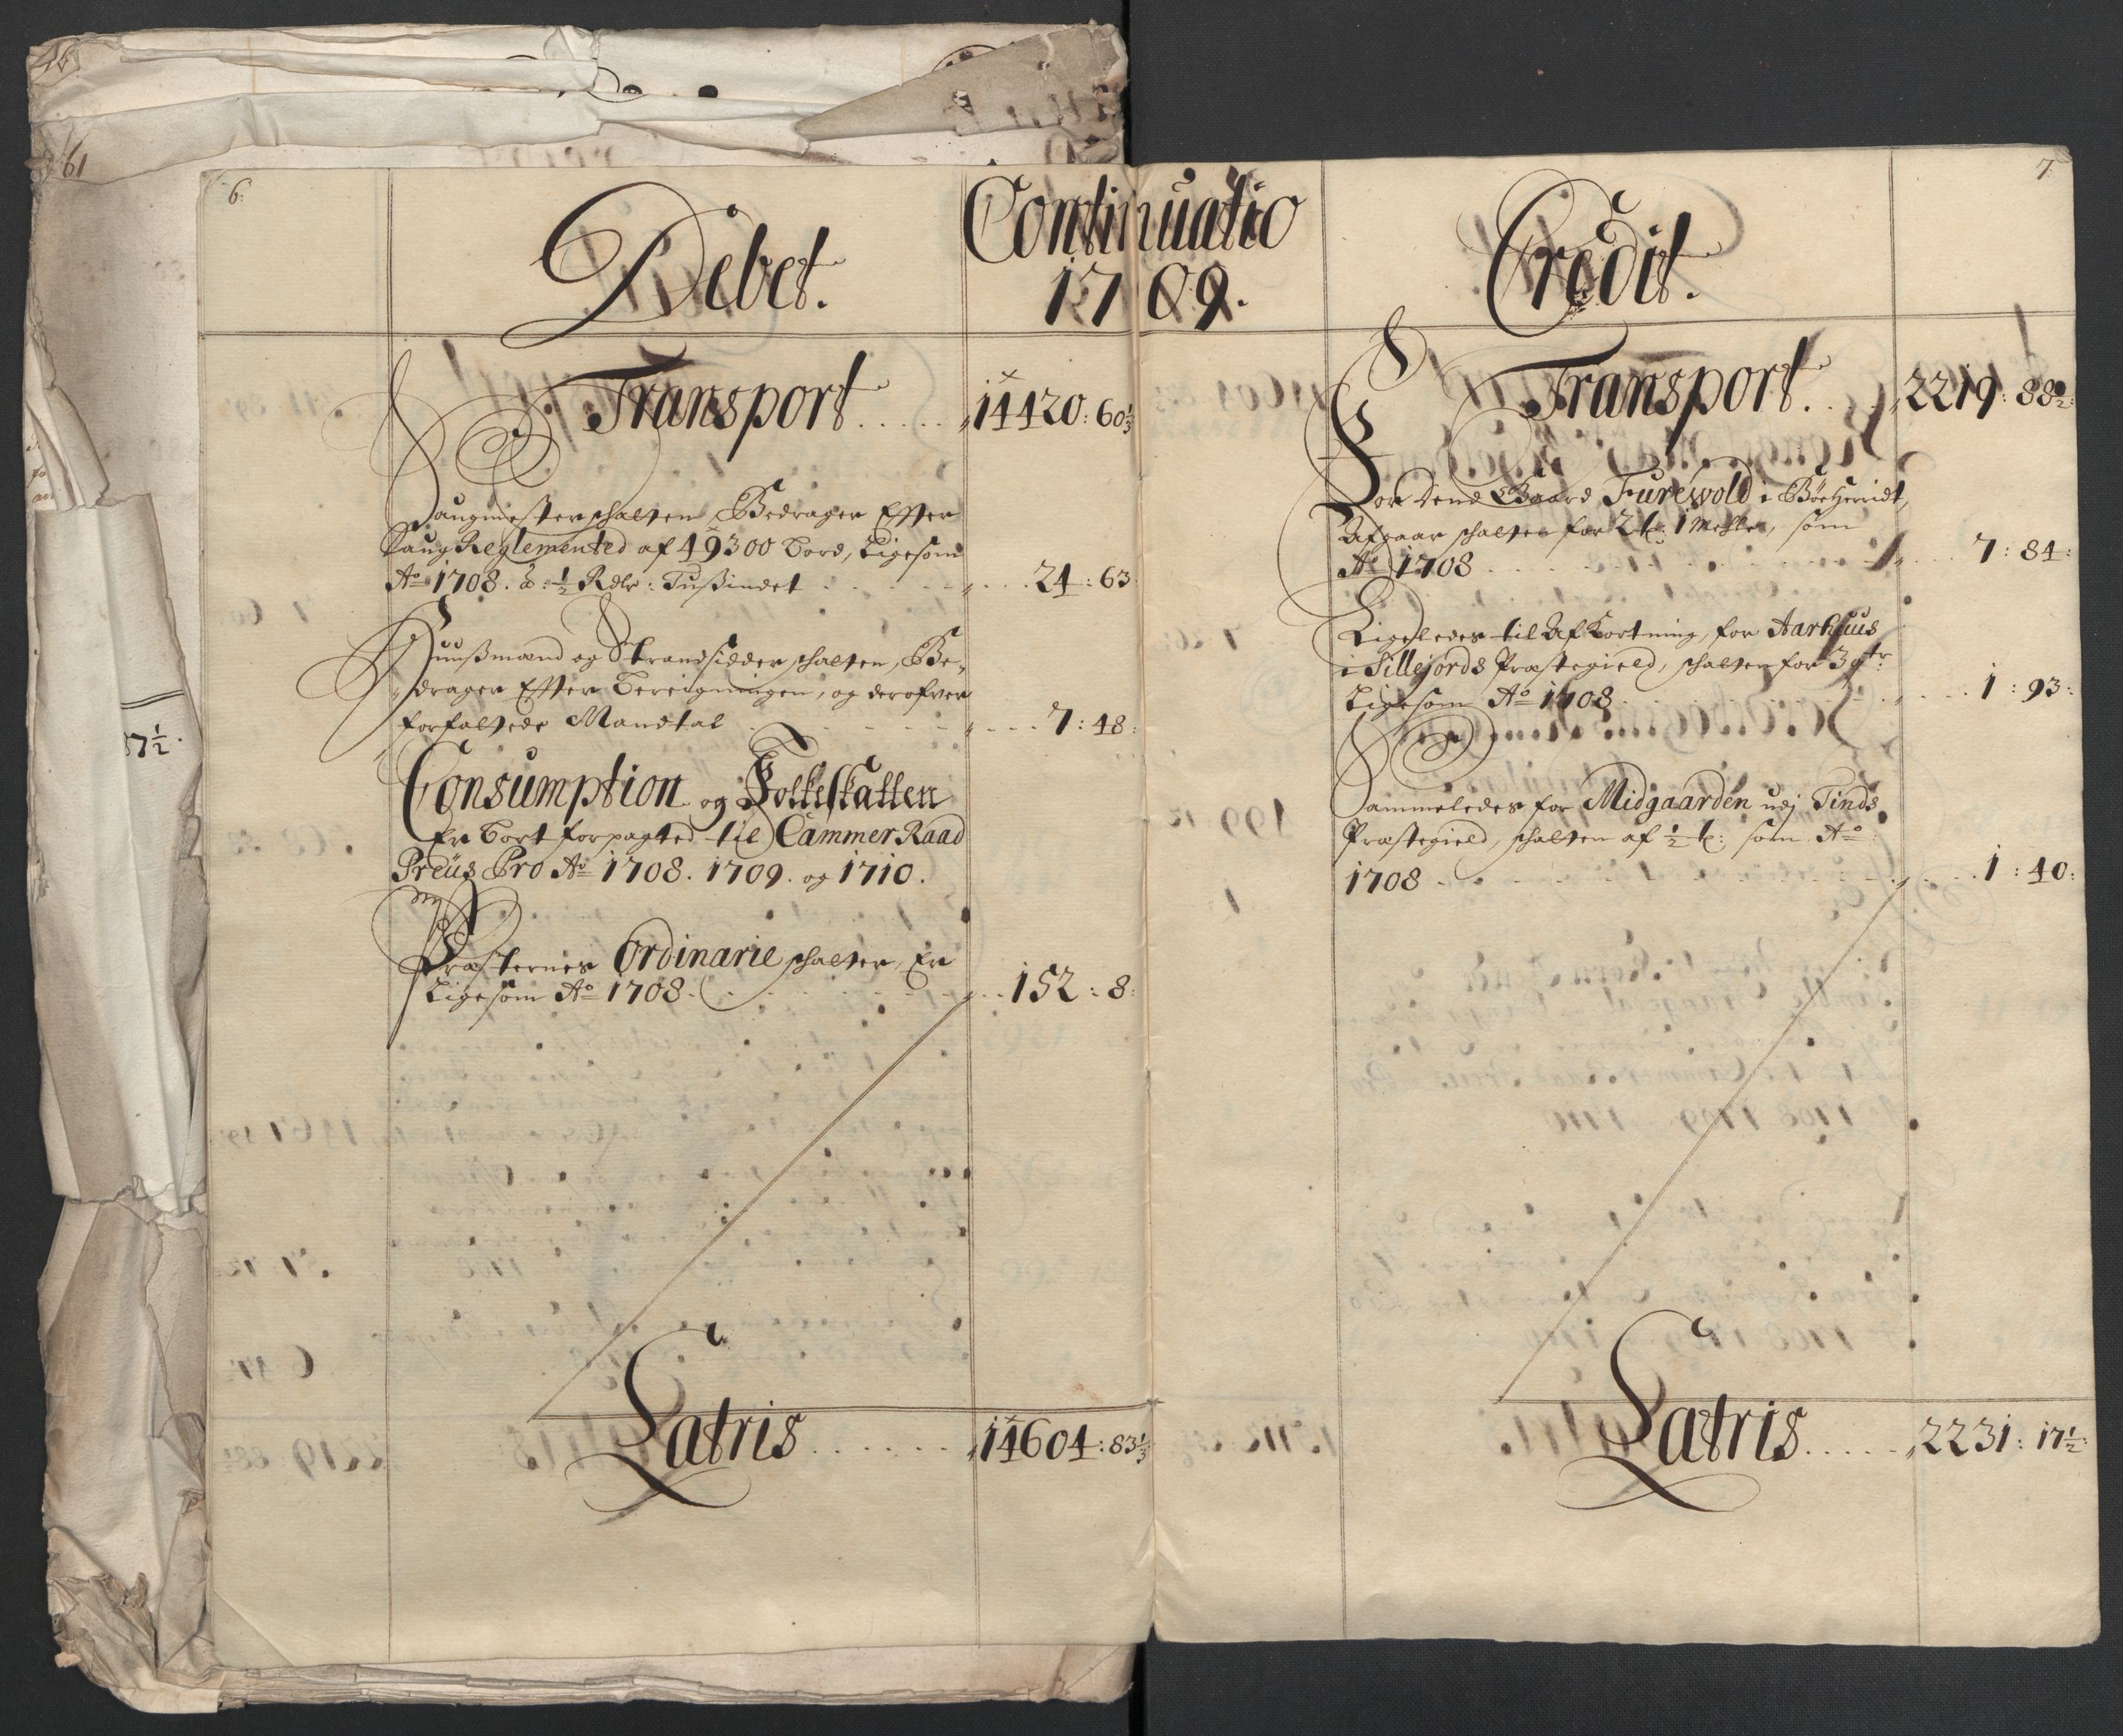 61
37½.
6.
Continuatio
1709.
Debet.
Transport ..... 14420: 60⅓
Saugmesterschatten Bedrager Efter
Saug Reglemented af 49300 Bord, Ligesom
Ao 1708. à: ½ Rdlr: Tusindet ..... 24: 63
Huusmænd og Strandsidder schatten, Be-
drager Efter Beregningen, og derofver
forfattede Mandtal ..... 7: 48:
Consumption og Folkeskatten
Er Bort forpagted til Cammer Raad
Preüs Pro Ao 1708. 1709. og 1710.
Præsternes Ordinarie schatter, Er
Ligesom Ao 1708. ..... 152: 8:
Latris ...... 14604: 83⅓
7.
Credit.
Transport. .... 2219: 88½:
For dend Gaard Furewold i Böe Herridt,
Afgaar schatten for 2 t: 1 Mehler, som
Ao 1708 ..... 7: 84:
Ligeledes til Afkortning, for Aarhuus
i Sillejords Præstegield, schatten for 3 qtr:
Ligesom Ao 1708 ..... 1: 93:
Sammeledes for Midgaarden udj Tinds
Præstegield, schatten af ½ t: som Ao
1708 ..... 1: 40:
Latris ..... 2231: 17½: